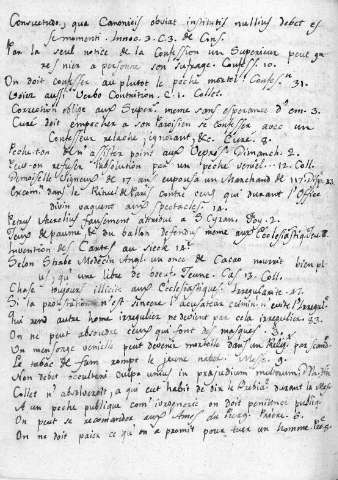 Consuetudo, quæ Canonicis obviat institutis nullius debet es
se momenti. Innoc. 3. C. 3. de Cons.
Par la seul notice de la Confession un Superieur peut
res nier a personne son sufrage. Confess. 10.
On doit confesser au plutot le peché mortel. Confess. 31.
Voiez aussi Verbo Contrition. C. 1. Collet.
Correction oblige aux Super. meme sans esperance d'em. 3.
Curé doit empecher a son Paroisien se confesser avec un
Confesseur relaché, ignorant, &c. Cure. 8.
Peche-t-on de n'assister point aux Vepres? Dimanch. 2.
Peut-on refuser l'absolution par un peché veniel. 12. Coll.
Demoiselle Signeurs de 17 ans epousa un Marchand de
Excom. dans le Rituel de Paris contre ceux qui durant l'Office
divin vaquent aux spectacles. 14.
Petrus Aurelius fausement atribué a S. Cyran. 2.
Jeux de paume & du ballon defendus meme aux Ecclesiastiques. 8.
Invention des Cartes au siecle 14
Selon Stube Medecin Angl. un once de Cacao nourrit bien pl
us, qu'une libre de boeuf. Jeune. Cas 13. Coll.
Chase toujour illicite aux Ecclesiastiques. Irregularité.
Si la protestation n'est sincere l'acusateur crimin. n'evide l'Irregul.
Qui rend autre homme irregulier ne devient par cela irregulier. 23.
On ne peut absoudre ceux qui font des masques. 3.
Un mensonge veniele peut devenir mortele dans un Relig. par
Le tabac de fum. rompt le jeune naturel. Mess. 9.
Non debet occultari culpa unius in præjudium multorum.
Collet n'absolveroit, a qui eut habit de dire le Brebia. durant la Mess
A un peché publique com' ivrogneric on doit penitence publiq.
On peut se recomander aux Ames du Purg. Priere. 6.
On ne doit paier ce qu'on a promit pour tuer un homme.